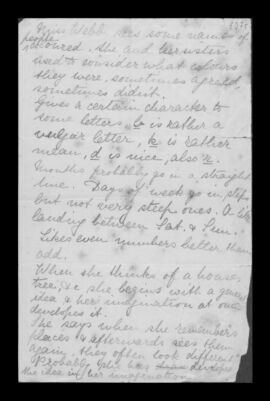 Miss Webb sees some names of
people
coloured. She and her sisters
used to consider what colours
they were, sometimes agreed,
sometimes didn't.
Gives a certain character to
some letters, b is rather a
vulgar letter, k is rather
mean, d is nice, also r.
Months probably go in a straight
line. Days of week go in steps
but not very steep ones. A
landing between Sat. & Sun.
Likes even numbers better than
odd.
When she thinks of a house,
tree, &c she begins with a general
idea & her imagination at once
developes it.
She says when she remembers
places & afterwards sees them
again, they often look different.
Probably she has develop
the idea in her imagination.